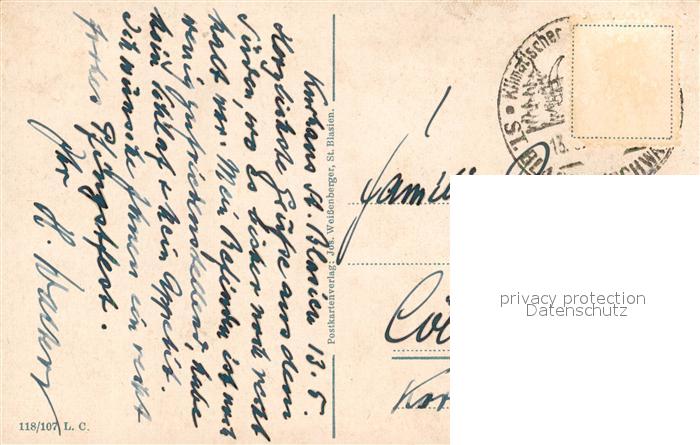 Kurhaus St. Blasien 13. 5.
Herzlichste Grüße aus dem
Süden, wo es bisher noch recht
kalt war. Mein Befinden ist noch
wenig zufriedenstellend, habe
kein Schlaf & kein Appetit.
Ich wünsche Ihnen ein recht
frohes Pfingstfest.
Ihr H.
118/107 L. C.
Postkartenverlag: Jos. Weißenberger, St. Blasien.
ST. BLA
Klimatischer
13.
SCHWA
Famil
Cö
privacy protection
Datenschutz